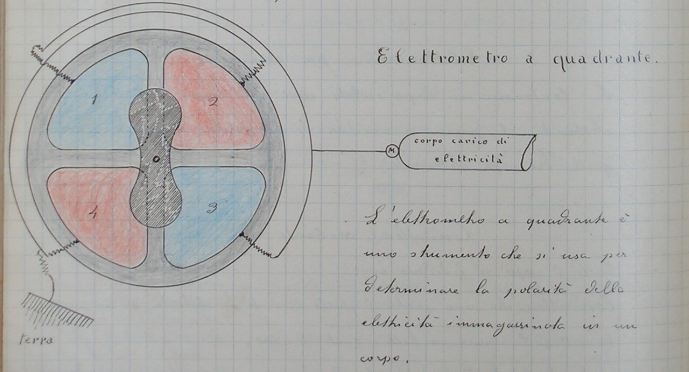 Elettrometro a quadrante.
1
2
M
corpo carico di
elettricità
4
3
L'elettrometro a quadrante è
uno strumento che si usa per
determinare la polarità della
elettricità immagazzinata in un
corpo.
terra